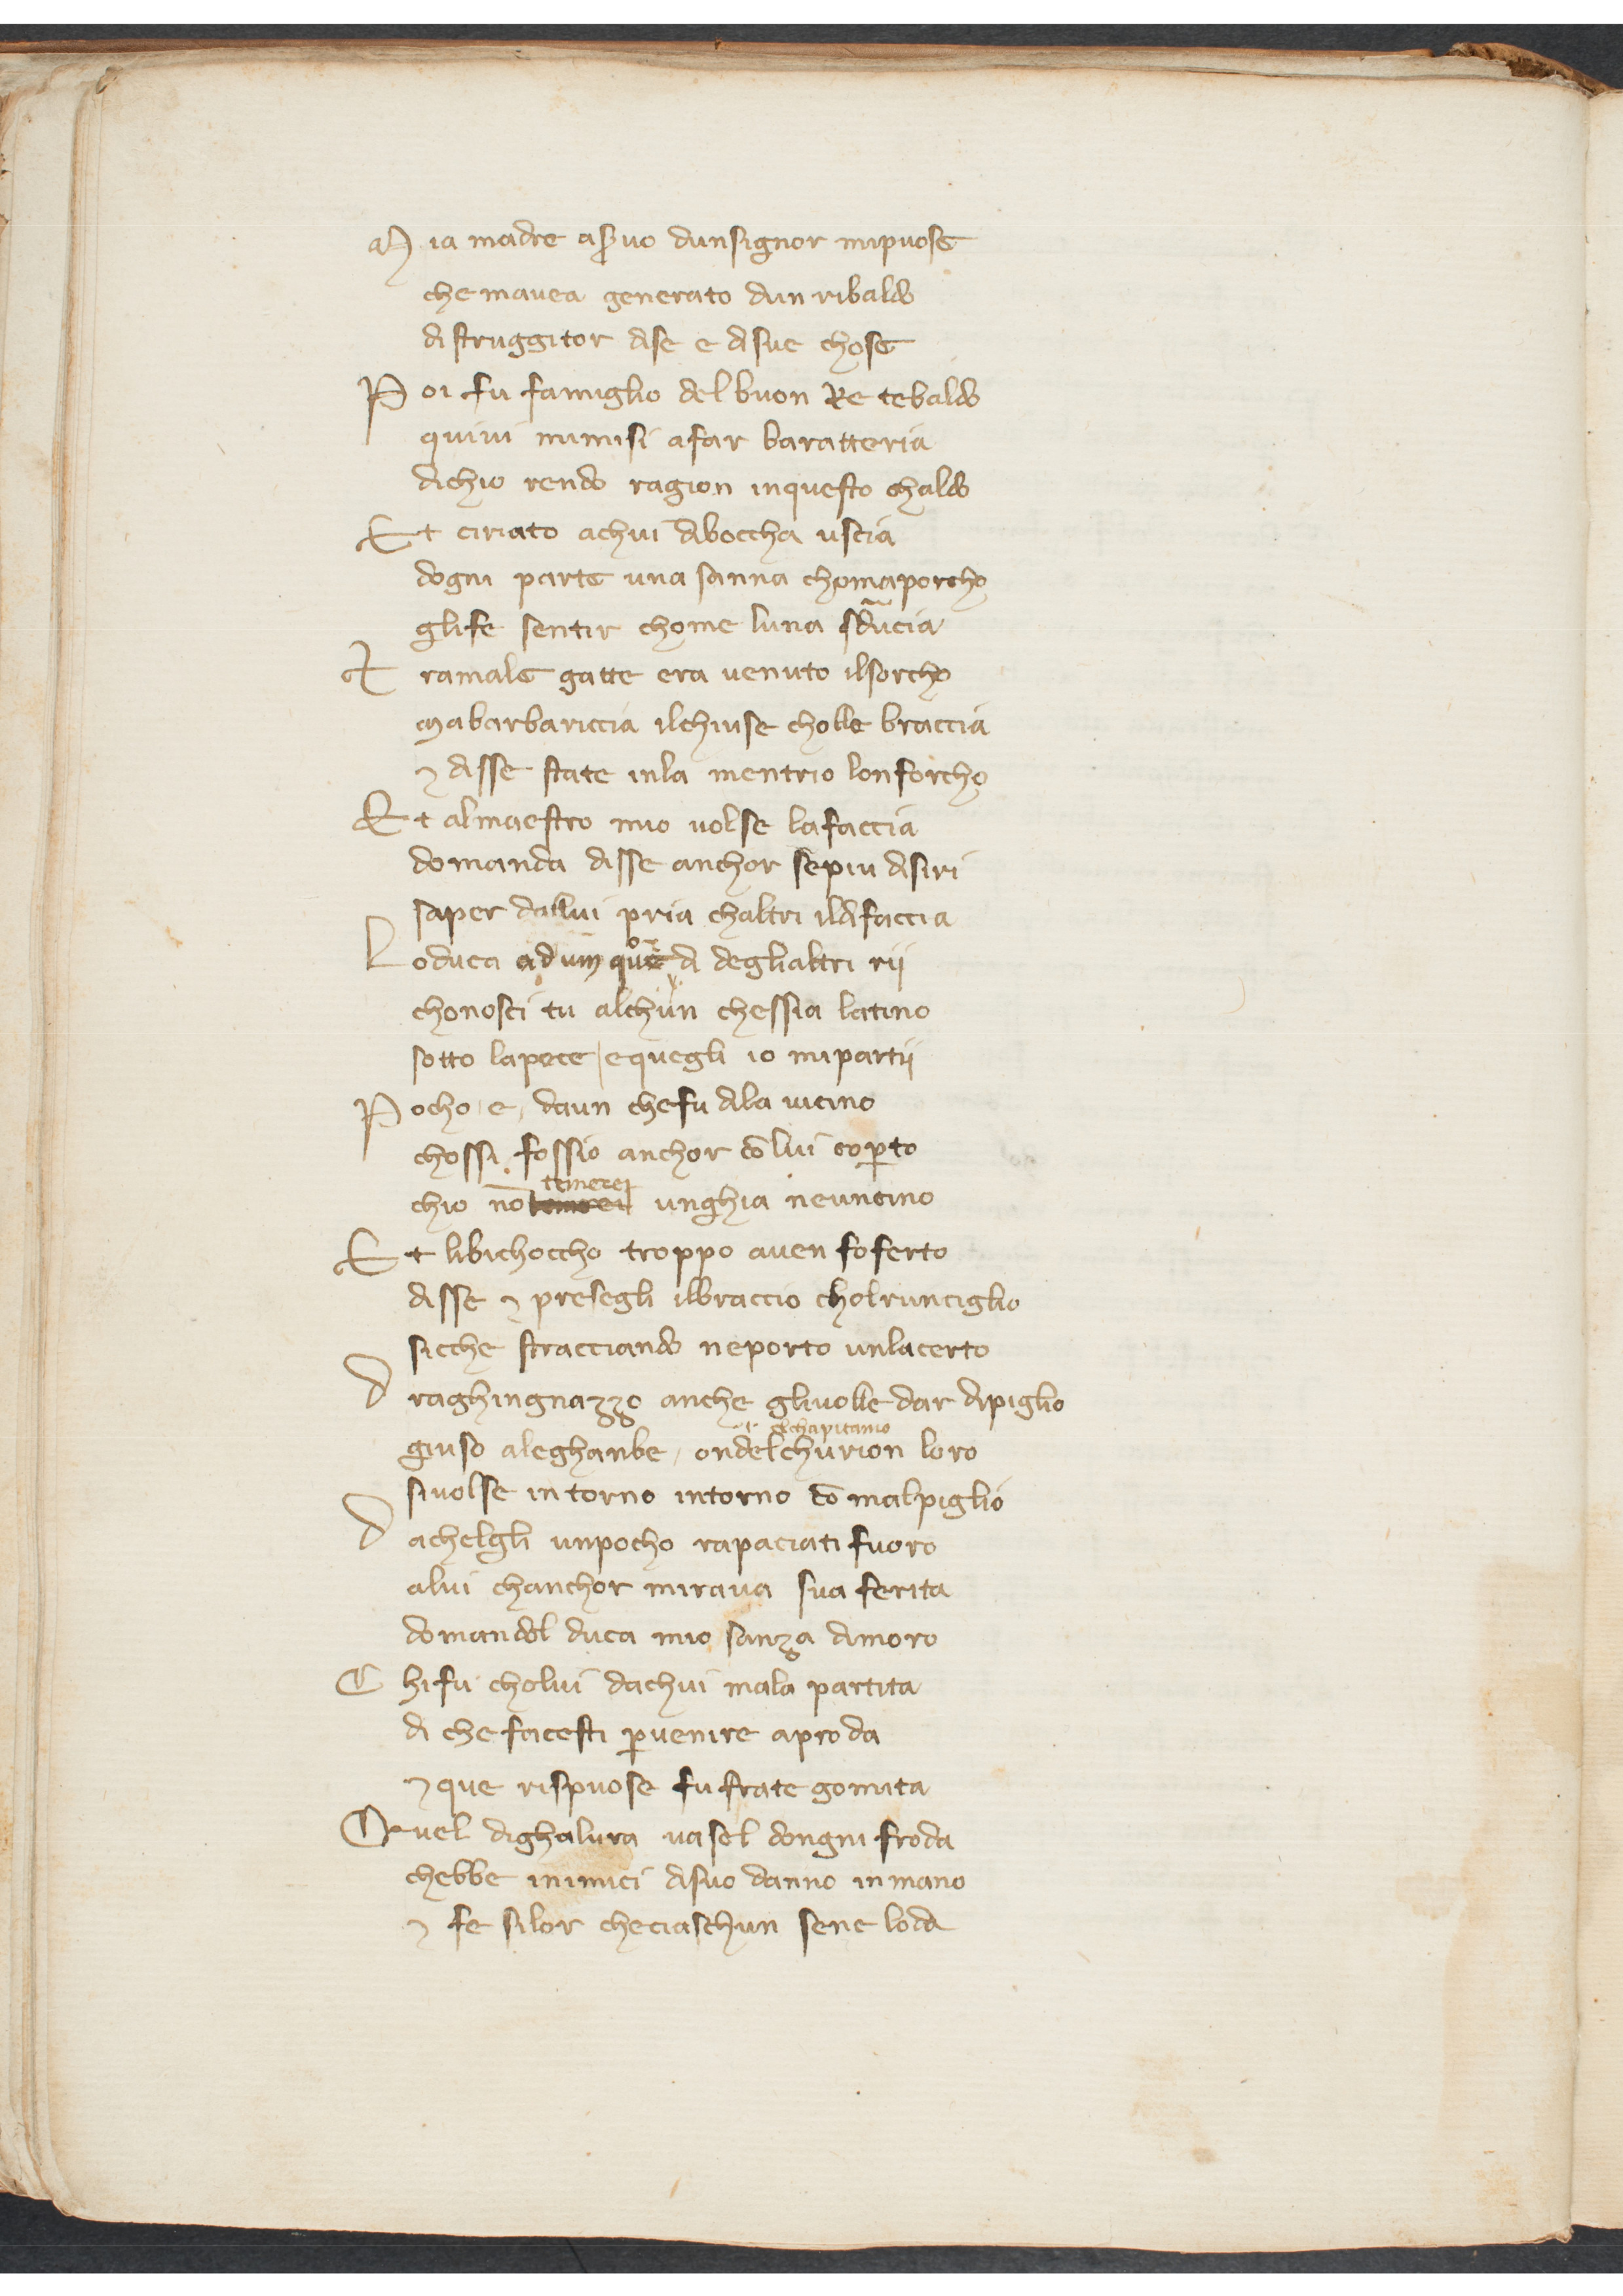 M ia madre a ꝓuo dunsignor mipuose
che mauea generato dun ribaldo
distruggitor dise e disue chose
P oi fu famiglio del buon Re tebaldo
quiui mimisi afar baratteria
dichio rendo ragion inquesto chaldo
E t ciriato achui diboccha uscia
dogni parte una sanna chomaporcho
glife sentir chome luna sducia
T ramale gatte era uenuto ilsorcho
mabarbariccia ilchiuse cholle braccia
⁊ disse state inla mentrio lonforcho
E t almaestro mio uolse lafaccia
domanda disse anchor sepiu disiri
saper dallui pria chaltri ildifaccia
L oduca adunque di deglialtri rii
chonosci tu alchun chessia latino
sotto lapece / equegli io mipartii
P ocho / e / daun chefu dila uicino
chossi fossio anchor cō lui coꝑto
temerei
chio nō temerei unghia neuncino
E t libichoccho troppo auen soferto
disse ⁊ presegli ilbraccio cholrunciglio
sicche stracciando neporto unlacerto
D raghingnazzo anche gliuolle dar dipiglio
chapitanio
giuso aleghanbe / ondelchurion loro
siuolse intorno intorno cō malpiglio
D achelgli unpocho rapaciati fuoro
alui chanchor miraua sua ferita
domandol duca mio sanza dimoro
C hi fu cholui dachui mala partita
di che facesti ꝑuenire aproda
⁊ que rispuose fu frate gomita
Q uel dighalura uasel dongni froda
chebbe inimici disuo danno inmano
⁊ fe silor checiaschun sene loda